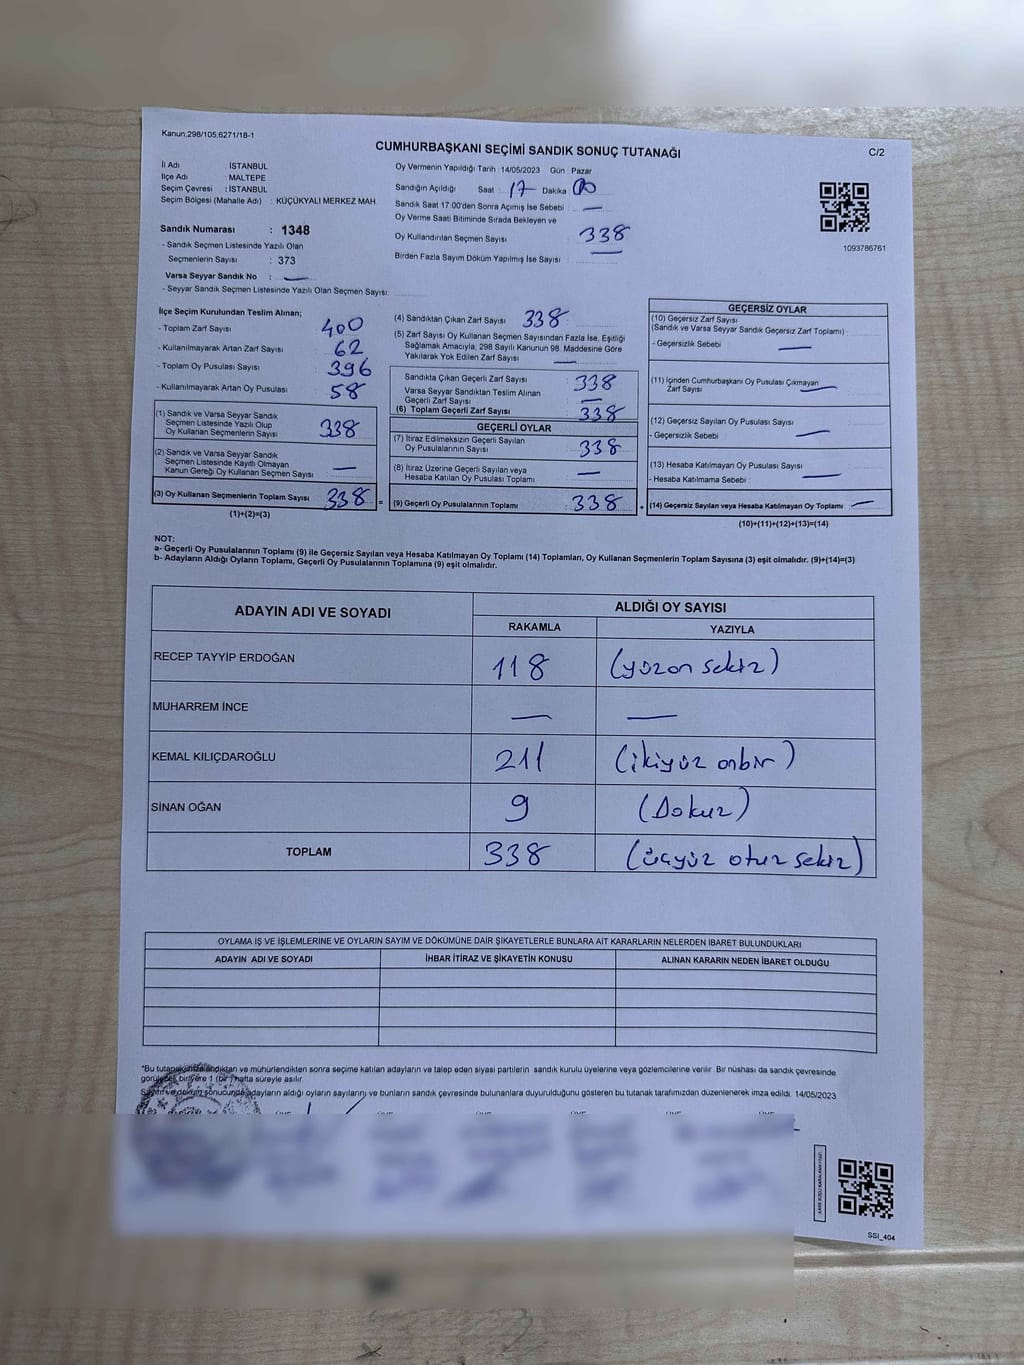 Kanun:298/105,6271/18-1
CUMHURBAŞKANI SEÇİMİ SANDIK SONUÇ TUTANAĞI
C/2
İl Adı : İSTANBUL
İlçe Adı : MALTEPE
Seçim Çevresi : İSTANBUL
Seçim Bölgesi (Mahalle Adı) : KÜÇÜKYALI MERKEZ MAH.
Sandık Numarası : 1348
- Sandık Seçmen Listesinde Yazılı Olan
Seçmenlerin Sayısı : 373
Varsa Seyyar Sandık No : —
- Seyyar Sandık Seçmen Listesinde Yazılı Olan Seçmen Sayısı:
Oy Vermenin Yapıldığı Tarih :14/05/2023 Gün : Pazar
Sandığın Açıldığı Saat : 17 Dakika : 00
Sandık Saat 17.00'den Sonra Açımış İse Sebebi : —
Oy Verme Saati Bitiminde Sırada Bekleyen ve
Oy Kullandırılan Seçmen Sayısı : 338
Birden Fazla Sayım Döküm Yapılmış İse Sayısı : —
1093786761
İlçe Seçim Kurulundan Teslim Alınan;
- Toplam Zarf Sayısı : 400
- Kullanılmayarak Artan Zarf Sayısı : 62
- Toplam Oy Pusulası Sayısı : 396
- Kullanılmayarak Artan Oy Pusulası : 58
(1) Sandık ve Varsa Seyyar Sandık
Seçmen Listesinde Yazılı Olup
Oy Kullanan Seçmenlerin Sayısı : 338
(2) Sandık ve Varsa Seyyar Sandık
Seçmen Listesinde Kayıtlı Olmayan
Kanun Gereği Oy Kullanan Seçmen Sayısı : —
(3) Oy Kullanan Seçmenlerin Toplam Sayısı : 338 =
(1)+(2)=(3)
(4) Sandıktan Çıkan Zarf Sayısı : 338
(5) Zarf Sayısı Oy Kullanan Seçmen Sayısından Fazla İse, Eşitliği
Sağlamak Amacıyla, 298 Sayılı Kanunun 98. Maddesine Göre
Yakılarak Yok Edilen Zarf Sayısı : —
Sandıkta Çıkan Geçerli Zarf Sayısı : 338
Varsa Seyyar Sandıktan Teslim Alınan
Geçerli Zarf Sayısı : —
(6) Toplam Geçerli Zarf Sayısı : 338
GEÇERLİ OYLAR
(7) İtiraz Edilmeksizin Geçerli Sayılan
Oy Pusulalarının Sayısı : 338
(8) İtiraz Üzerine Geçerli Sayılan veya
Hesaba Katılan Oy Pusulası Toplamı : —
(9) Geçerli Oy Pusulalarının Toplamı : 338 +
GEÇERSİZ OYLAR
(10) Geçersiz Zarf Sayısı
(Sandık ve Varsa Seyyar Sandık Geçersiz Zarf Toplamı) :
- Geçersizlik Sebebi : —
(11) İçinden Cumhurbaşkanı Oy Pusulası Çıkmayan
Zarf Sayısı : —
(12) Geçersiz Sayılan Oy Pusulası Sayısı :
- Geçersizlik Sebebi : —
(13) Hesaba Katılmayan Oy Pusulası Sayısı :
- Hesaba Katılmama Sebebi : —
(14) Geçersiz Sayılan veya Hesaba Katılmayan Oy Toplamı : —
(10)+(11)+(12)+(13)=(14)
NOT:
a- Geçerli Oy Pusulalarının Toplamı (9) ile Geçersiz Sayılan veya Hesaba Katılmayan Oy Toplamı (14) Toplamları, Oy Kullanan Seçmenlerin Toplam Sayısına (3) eşit olmalıdır. (9)+(14)=(3)
b- Adayların Aldığı Oyların Toplamı, Geçerli Oy Pusulalarının Toplamına (9) eşit olmalıdır.
ADAYIN ADI VE SOYADI
ALDIĞI OY SAYISI
RAKAMLA YAZIYLA
RECEP TAYYİP ERDOĞAN 118 (yüzon sekiz)
MUHARREM İNCE — —
KEMAL KILIÇDAROĞLU 211 (ikiyüz onbir)
SİNAN OĞAN 9 (Dokuz)
TOPLAM 338 (üçyüz otuz sekiz)
OYLAMA İŞ VE İŞLEMLERİNE VE OYLARIN SAYIM VE DÖKÜMÜNE DAİR ŞİKAYETLERLE BUNLARA AİT KARARLARIN NELERDEN İBARET BULUNDUKLARI
ADAYIN ADI VE SOYADI İHBAR İTİRAZ VE ŞİKAYETİN KONUSU ALINAN KARARIN NEDEN İBARET OLDUĞU
*Bu tutanak imzalandıktan ve mühürlendikten sonra seçime katılan adayların ve talep eden siyasi partilerin sandık kurulu üyelerine veya gözlemcilerine verilir. Bir nüshası da sandık çevresinde
görülecek bir yere 1 (bir) hafta süreyle asılır.
Sayım ve döküm sonucunda adayların aldığı oyların sayılarını ve bunların sandık çevresinde bulunanlara duyurulduğunu gösteren bu tutanak tarafımızdan düzenlenerek imza edildi. 14/05/2023
SSI_404